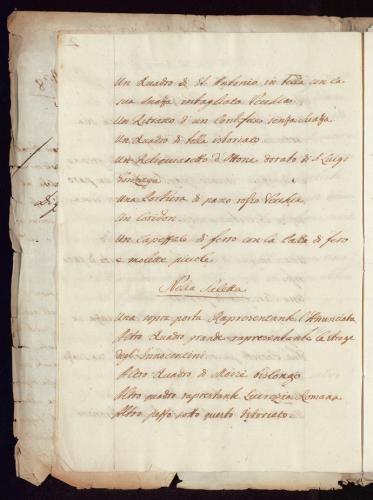 Un Quadro di S. Antonio in Tella con la
sua Suaza intagliata Vecchia
Un Retrato di un Pontefice senza Suaza
Un Quadro di tella istoriato
Un Reliquiaretto d'Ottone dorato di S. Luigi
Gonzaga
Una Portiera di pano rosso Vecchia
Un
Un Capeffoco di ferro con la Palla di fero
e molette picole
Nella Saletta
Una sopra porta Rapresentante l'Anunciata
Altro Quadro grande rapresentante la strage
degl'Innocentini
Altro Quadro di Mezzo bislongo
Altro quadro rapresentante Lucrezia Romana
Altro posto sotto questo istoriato